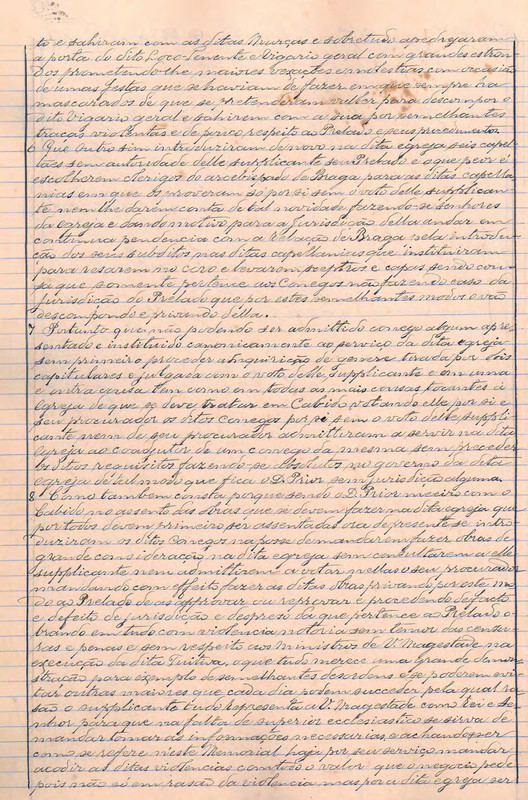 to e sahiram com as ditas Murças e sobretudo apedrejaram
a porta do dito Loco-Tenente e Vigario geral com grandes estron
dos prometendo-lhe maiores vexações e molestias com occasião
de umas festas que se haviam de fazer em que sempre ha
mascarados de que se pretenderam valler para descompor o
dito Vigario geral e sahirem com a sua por semelhantes
traças violentas e de pouco respeito ao Prelado e seus procedimentos.
6 Que outro sim introduziram de novo na dita egreja seis capel
lães sem autoridade delle supplicante seu Prelado e o que peor é
escolherem clerigos do arcebispado de Braga para as ditas capella
nias em que os proveram só por si sem o voto delle supplican
te nem lhe darem conta de tal novidade fazendo-se senhores
da Egreja e dando motivo para a Jurisdicção della andar em
continua pendencia com a Relação de Braga pela introduc
ção dos seus subditos nas ditas capellanias que instituiram
para resarem no coro e levarem sceptros e capas sendo cou
sa que somente pertence aos Conegos não fazendo caso da
Jurisdicção do Prelado que por estes semelhantes modos o vão
descompondo e privando della.
7 Portanto que não podendo ser admittido conego algum apre
sentado e instituido canonicamente ao serviço da dita egreja
sem primeiro proceder a Inquirição de genere tirada por dois
capitulares e julgada com o voto delle supplicante e em uma
e outra cousa bem como em todas as mais cousas tocantes á
Egreja de que se deve tratar em Cabido votando elle por si e
seu procurador os ditos conegos por si sem o voto delle suppli
cante nem de seu procurador admittiram a servir na dita
Egreja ao coadjutor de um conego da mesma sem preceder
os ditos requisitos fazendo-se absolutos no governo da dita
egreja de tal modo que fica o D. Prior sem jurisdicção alguma.
8 Como tambem consta porque sendo o D. Prior meeiro com o
Cabido no assento das obras que se devem fazer na dita egreja que
por todos devem primeiro ser assentadas ora de presente se intro
duziram os ditos Conegos na posse de mandarem fazer obras de
grande consideração na dita egreja sem consultarem a elle
supplicante nem admittirem a votar nellas o seu procurador
mandando com effeito fazer as ditas obras privando por este mo
do ao Prelado de as approvar ou reprovar e procedendo de facto
e defeito de jurisdicção e despreso da que pertence ao Prelado o
brando em tudo com violencia notoria sem temor das censu
ras e penas e sem respeito aos Ministros de V. Magestade na
execução da dita Tuitiva, o que tudo merece uma grande demon
stração para exemplo de semelhantes desordens e se poderem evi
tar outras maiores que cada dia podem succeder pela qual ra
são o supplicante tudo representa a V. Magestade como Rei e Se
nhor para que na falta de superior ecclesiastico se sirva de
mandar tomar as informações necessarias, e achando ser
como se refere n'este Memorial haja por seu serviço mandar
acodir as ditas violencias com todo o valor que o negocio pede
pois não só em rasão da violencia mas por a dita egreja ser